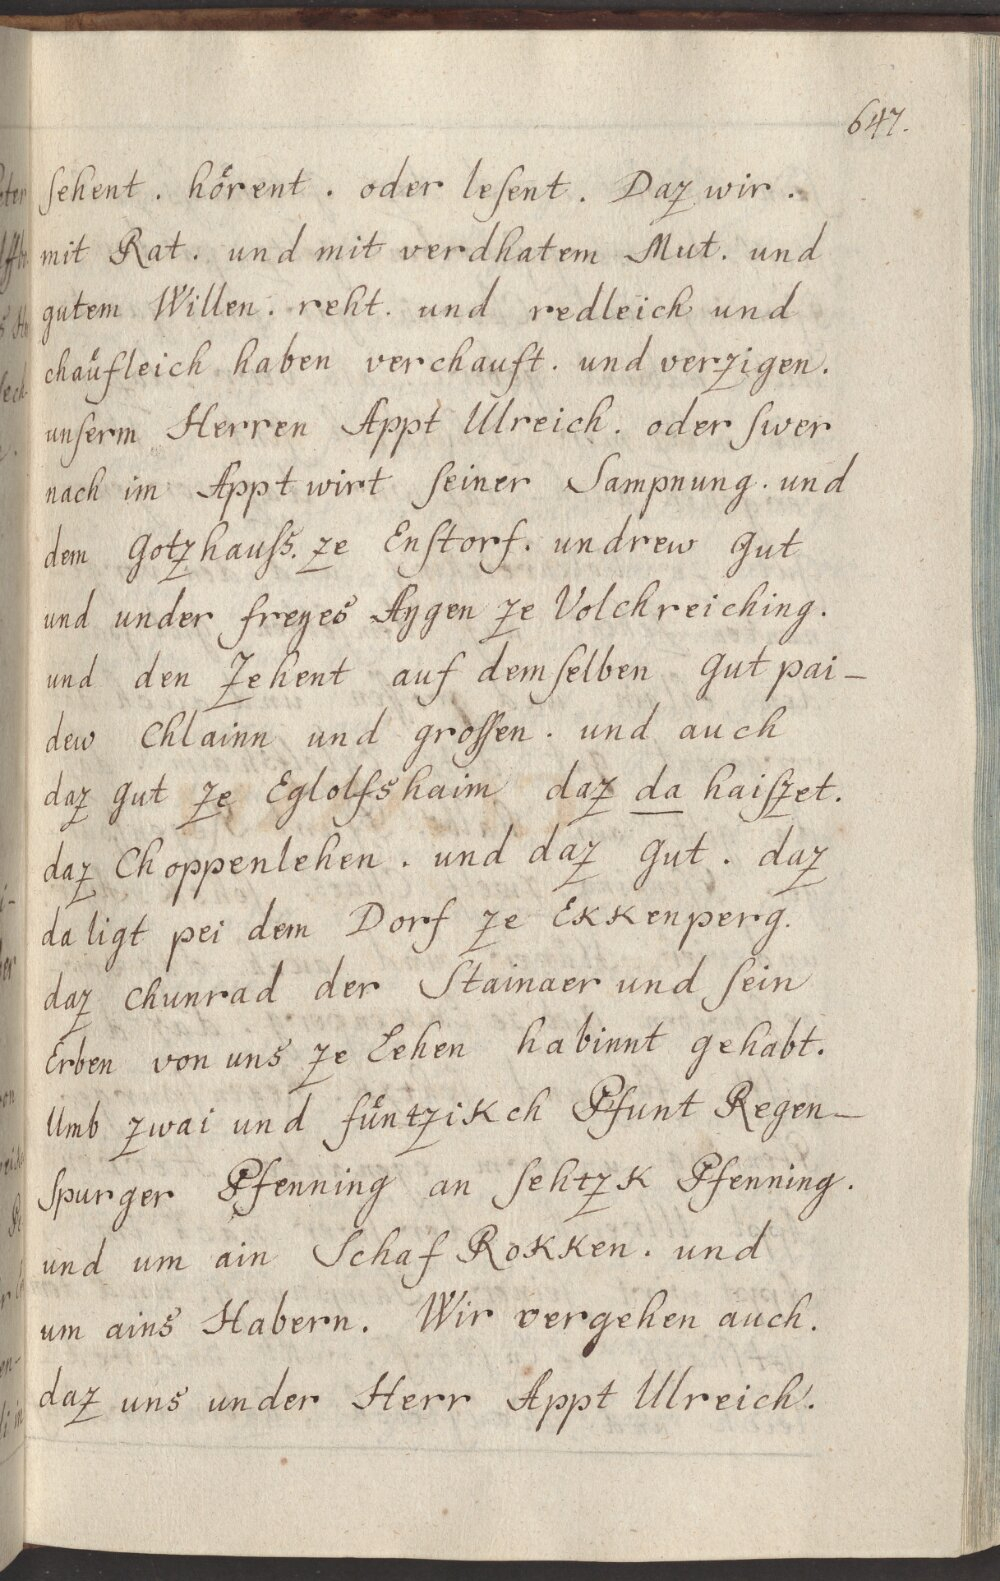 647.
sehent . hoͤrent . oder lesent . Daz wir .
mit Rat . und mit verdhatem Mut . und
gutem Willen . reht . und redleich und
chauͤfleich haben verchauft . und verzigen .
unserm Herren Appt Ulreich . oder swer
nach im Appt wirt seiner Sampnung . und
dem Gotzhauss . ze Enstorf . undrew Gut
und under freyes Aygen ze Volckreiching .
und den Zehent auf demselben Gut pai-
dew Chlainn und grossen . und auch
daz Gut ze Eglolfshaim daz da haiszet .
daz Choppenlehen . und daz Gut . daz
da ligt pei dem Dorf ze Ekkenperg .
daz Chunrad der Stainaer und sein
Erben von uns ze Lehen habinnt gehabt .
Umb zwai und fuͤntzikch Pfunt Regen-
spurger Pfenning an sehtzk Pfenning .
und um ain Schaf Rokken . und
um ains Habern . Wir vergehen auch .
daz uns under Herr Appt Ulreich .